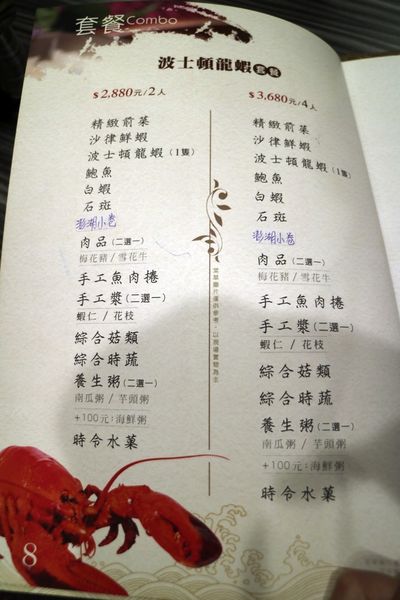 套餐Combo
波士頓龍蝦套餐
$2,880元/2人
精緻前菜
沙律鮮蝦
波士頓龍蝦(1隻)
鮑魚
白蝦
石斑
澎湖小卷
肉品(二選一)
梅花豬/雪花牛
手工魚肉捲
手工漿(二選一)
蝦仁/花枝
綜合菇類
綜合時蔬
養生粥(二選一)
南瓜粥/芋頭粥
+100元:海鮮粥
時令水菓
$3,680元/4人
精緻前菜
沙律鮮蝦
波士頓龍蝦(1隻)
鮑魚
白蝦
石斑
澎湖小卷
肉品(二選一)
梅花豬/雪花牛
手工魚肉捲
手工漿(二選一)
蝦仁/花枝
綜合菇類
綜合時蔬
養生粥(二選一)
南瓜粥/芋頭粥
+100元:海鮮粥
時令水菓
菜單圖片僅供參考，以現場實物為主
8